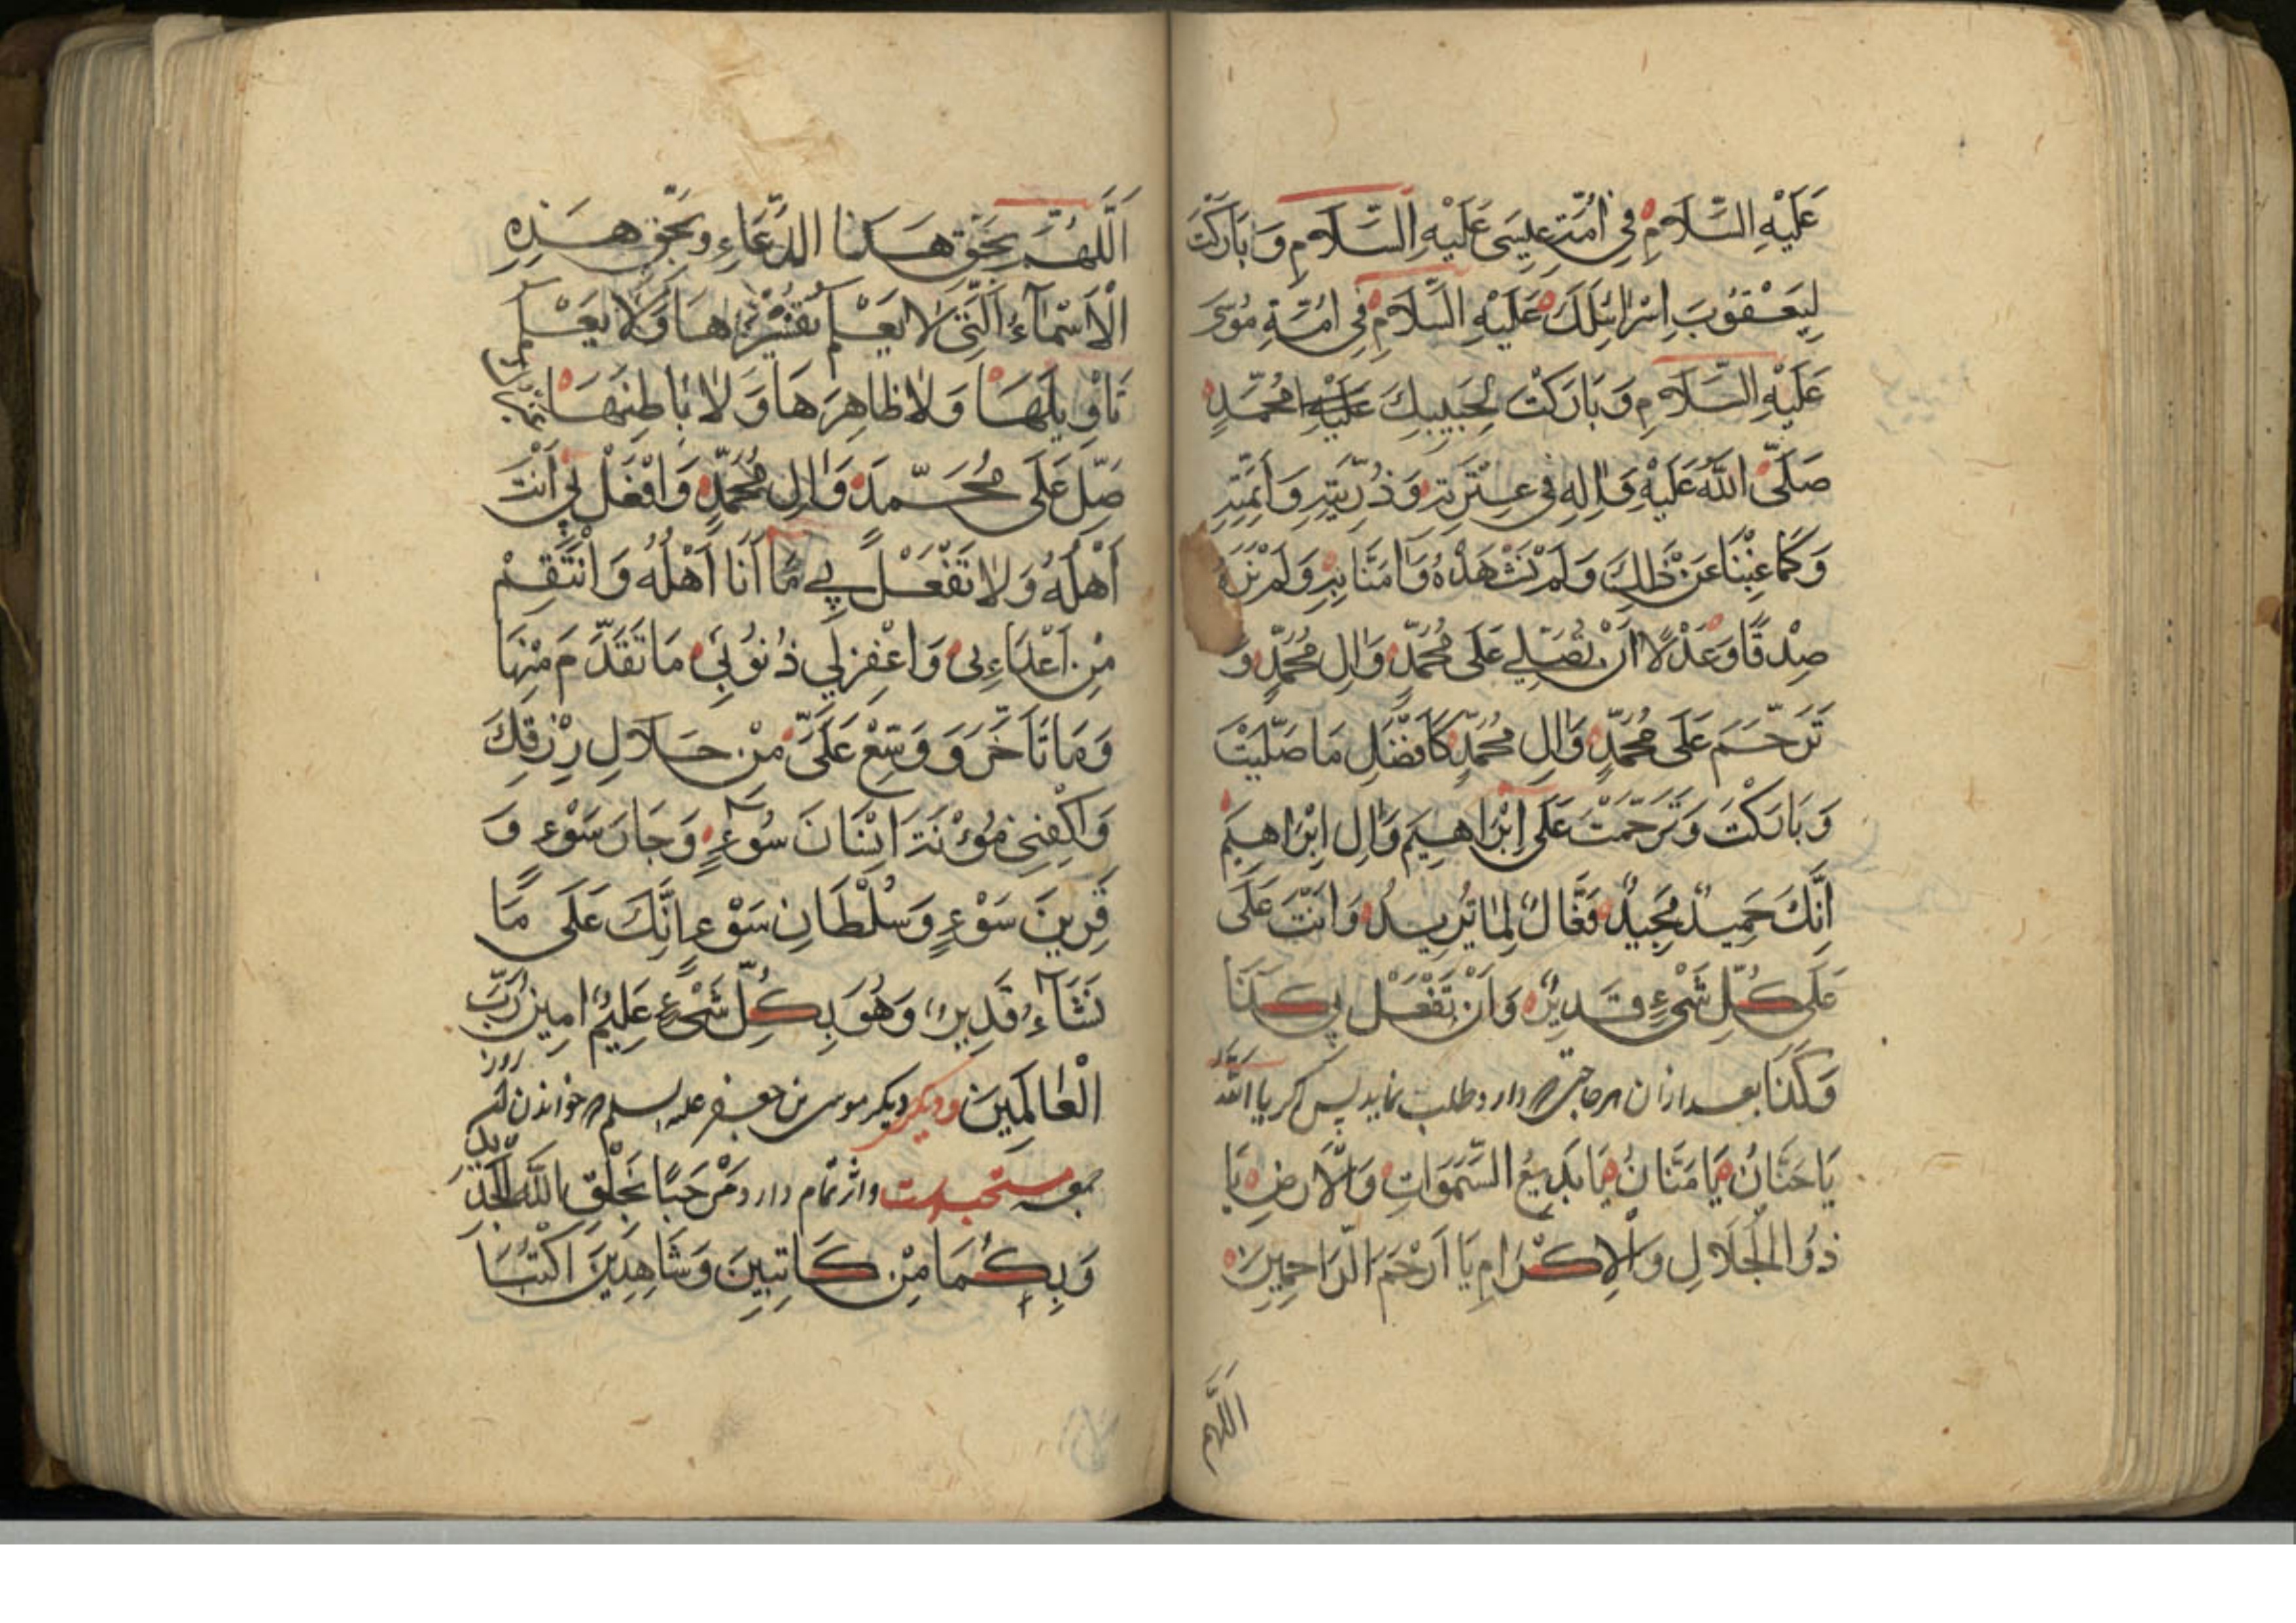 عَلَيْهِ السَّلَامِ فِي اُمَّةِ عِيسَى عَلَيْهِ السَّلَامِ وَ بَارَكْتَ
لِيَعْقُوبَ اِسْرَائِلِكَ عَلَيْهِ السَّلَامِ فِي اُمَّةِ مُوسَى
عَلَيْهِ السَّلَامِ وَ بَارَكْتَ لِحَبِيبِكَ مُحَمَّدٍ
صَلَّى اللهُ عَلَيْهِ وَاٰلِهِ فِي عِتْرَتِهِ وَ ذُرِّيَّتِهِ وَ اُمَّتِهِ
وَ كَمَا غِبْنَا عَنْ ذٰلِكَ وَ لَمْ نَشْهَدْهُ وَ اٰمَنَّا بِهِ وَ لَمْ نَرَهُ
صِدْقًا وَ عَدْلًا اَنْ تُصَلِّيَ عَلَى مُحَمَّدٍ وَ اٰلِ مُحَمَّدٍ وَ
تَرَحَّمَ عَلَى مُحَمَّدٍ وَ اٰلِ مُحَمَّدٍ كَاَفْضَلِ مَا صَلَّيْتَ
وَ بَارَكْتَ وَ تَرَحَّمْتَ عَلَى اِبْرَاهِيمَ وَ اٰلِ اِبْرَاهِيمَ
اِنَّكَ حَمِيدٌ مَجِيدٌ فَعَّالٌ لِمَا تُرِيدُ وَ اَنْتَ عَلَى
عَلَى كُلِّ شَيْءٍ قَدِيرٌ وَ اَنْ تَفْعَلَ بِي كَذَا
وَ كَذَا بعد ازان هر حاجتى دارد طلب نمايد پس گويد يا اللهُ
يَا حَنَّانُ يَا مَنَّانُ يَا بَدِيعَ السَّمٰوَاتِ وَ الْاَرْضِ يَا
ذُو الْجَلَالِ وَ الْاِكْرَامِ يَا اَرْحَمَ الرَّاحِمِينَ
اللهم
اَللّٰهُمَّ بِحَقِّ هٰذَا الدُّعَاءِ وَ بِحَقِّ هٰذِهِ
الْاَسْمَاءِ الَّتِي لَا يَعْلَمُ تَفْسِيرَهَا وَ لَا يَعْلَمُ
تَاْوِيلَهَا وَ لَا ظَاهِرَهَا وَ لَا بَاطِنَهَا
صَلِّ عَلَى مُحَمَّدٍ وَ اٰلِ مُحَمَّدٍ وَ افْعَلْ بِي اَنْتَ
اَهْلُهُ وَ لَا تَفْعَلْ بِي مَا اَنَا اَهْلُهُ وَ انْتَقِمْ
مِنْ اَعْدَاءِى وَ اغْفِرْ لِي ذُنُوبِي مَا تَقَدَّمَ مِنْهَا
وَ مَا تَاَخَّرَ وَ وَسِّعْ عَلَيَّ مِنْ حَلَالِ رِزْقِكَ
وَ اكْفِنِي مَؤُنَةَ اِنْسَانِ سَوْءٍ وَ جَارِ سَوْءٍ وَ
قَرِينَ سَوْءٍ وَ سُلْطَانِ سَوْءٍ اِنَّكَ عَلَى مَا
تَشَاءُ قَدِيرٌ وَ هُوَ بِكُلِّ شَيْءٍ عَلِيمٌ اٰمِينَ رَبَّ
الْعَالَمِينَ وديكر ديكر موسى بن جعفر عليه السلم خواندن روز
جمعه مستحبست مَرْحَبًا بِخَلْقِ اللهِ الْجَدِيدِ
وَ بِكُمَا مِنْ كَاتِبَيْنِ وَ شَاهِدَيْنِ اكْتُبَا